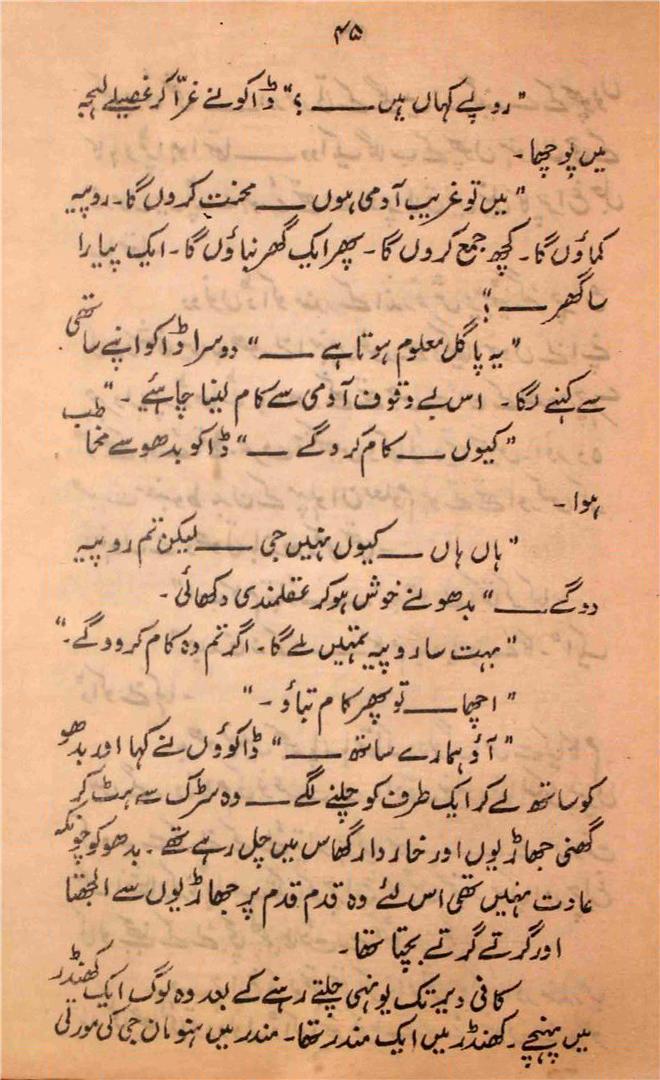 ۴۵
"روپے کہاں ہیں ——؟" ڈاکو نے غرّا کر غصیلے لہجہ
میں پوچھا۔
"میں تو غریب آدمی ہوں —— محنت کروں گا۔ روپیہ
کماؤں گا۔ کچھ جمع کروں گا۔ پھر ایک گھر بناؤں گا۔ ایک پیارا
سا گھر ——"؟
"یہ پاگل معلوم ہوتا ہے ——" دوسرا ڈاکو اپنے ساتھی
سے کہنے لگا۔ اس بے وقوف آدمی سے کام لینا چاہئے۔"
"کیوں —— کام کرو گے ——" ڈاکو بدھو سے مخاطب
ہوا۔
"ہاں ہاں —— کیوں نہیں جی —— لیکن تم روپیہ
دو گے ——" بدھو نے خوش ہو کر عقلمندی دکھائی۔
"بہت سا روپیہ تمہیں ملے گا۔ اگر تم وہ کام کر دو گے۔"
"اچھا —— تو پھر کام بتاؤ۔"
"آؤ ہمارے ساتھ ——" ڈاکوؤں نے کہا اور بدھو
کو ساتھ لے کر ایک طرف کو چلنے لگے —— وہ سڑک سے ہٹ کر
گھنی جھاڑیوں اور خاردار گھاس میں چل رہے تھے۔ بدھو کو چونکہ
عادت نہیں تھی اس لئے وہ قدم قدم پر جھاڑیوں سے الجھتا
اور گرتے گرتے بچتا تھا۔
کافی دیر تک یونہی چلتے رہنے کے بعد وہ لوگ ایک کھنڈر
میں پہنچے۔ کھنڈر میں ایک مندر تھا۔ مندر میں ہنومان جی کی مورتی